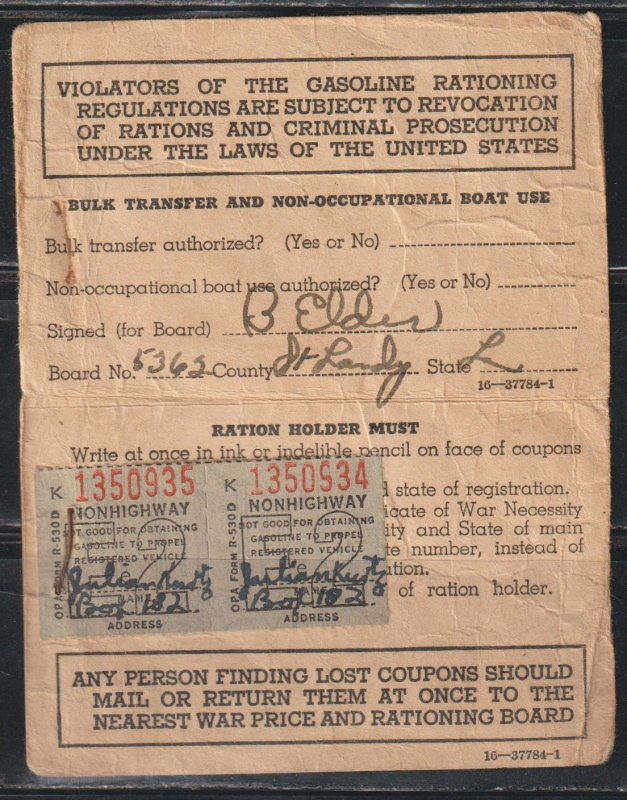 VIOLATORS OF THE GASOLINE RATIONING
REGULATIONS ARE SUBJECT TO REVOCATION
OF RATIONS AND CRIMINAL PROSECUTION
UNDER THE LAWS OF THE UNITED STATES
BULK TRANSFER AND NON-OCCUPATIONAL BOAT USE
Bulk transfer authorized? (Yes or No)
Non-occupational boat use authorized? (Yes or No)
Signed (for Board) B Elder
Board No. 5362 County St Landy State L
16—37784-1
RATION HOLDER MUST
Write at once in ink or indelible pencil on face of coupons
d state of registration.
icate of War Necessity
ity and State of main
te number, instead of
ation.
of ration holder.
K 1350935
NONHIGHWAY
NOT GOOD FOR OBTAINING
GASOLINE TO PROPEL
REGISTERED VEHICLE
Box 182
NAME
ADDRESS
OPA FORM R-530D
K 1350934
NONHIGHWAY
NOT GOOD FOR OBTAINING
GASOLINE TO PROPEL
REGISTERED VEHICLE
Box 182
NAME
ADDRESS
OPA FORM R-530D
ANY PERSON FINDING LOST COUPONS SHOULD
MAIL OR RETURN THEM AT ONCE TO THE
NEAREST WAR PRICE AND RATIONING BOARD
16—37784-1